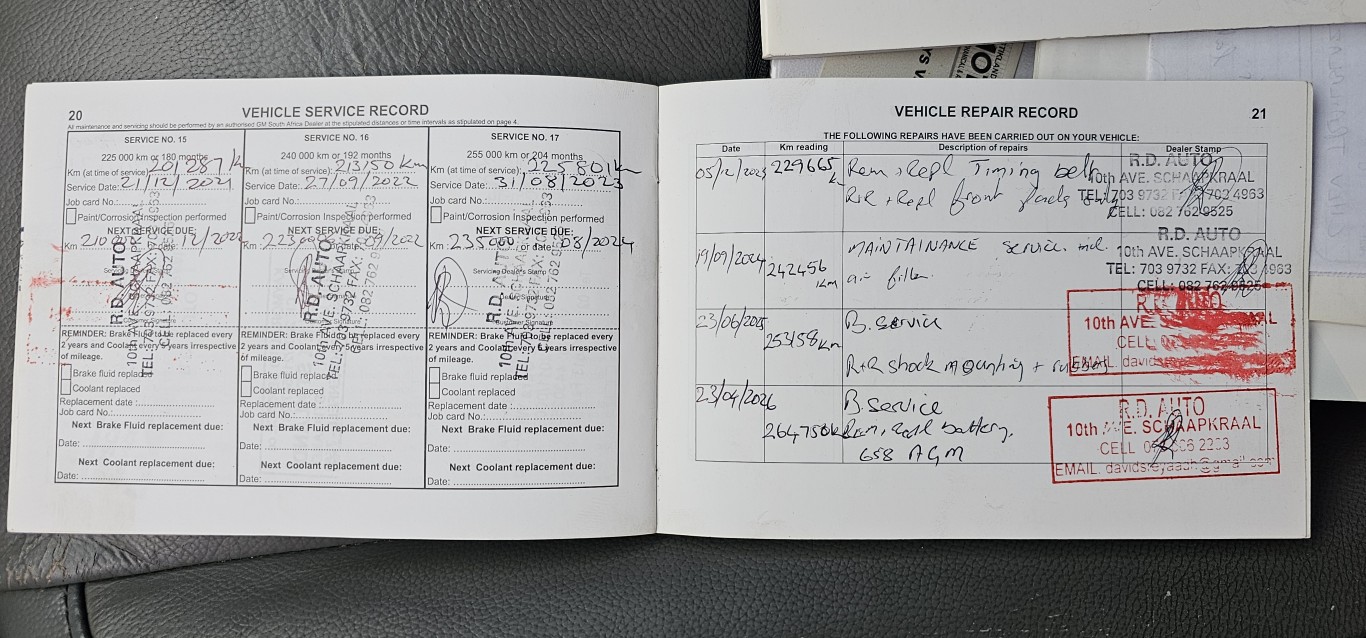 20
VEHICLE SERVICE RECORD
All maintenance and servicing should be performed by an authorised GM South Africa Dealer at the stipulated distances or time intervals as stipulated on page 4.
SERVICE NO. 15
225 000 km or 180 months
Km (at time of service): 201 287 km
Service Date: 21/12/2021
Job card No.:
Paint/Corrosion Inspection performed
NEXT SERVICE DUE:
Km : 210 000 12/2022
R.D. AUTO
10th AVE. SCHAAPKRAAL
REMINDER: Brake Fluid to be replaced every
2 years and Coolant every 5 years irrespective
of mileage.
Brake fluid replaced
Coolant replaced
Replacement date :
Job card No.:
Next Brake Fluid replacement due:
Date:
Next Coolant replacement due:
Date:
SERVICE NO. 16
240 000 km or 192 months
Km (at time of service): 213150 km
Service Date: 27/09/2022
Job card No.:
Paint/Corrosion Inspection performed
NEXT SERVICE DUE:
Km : 223000 09/2022
R.D. AUTO
10th AVE. SCHAAPKRAAL
TEL: 703 9732 FAX:
CELL: 082 762
REMINDER: Brake Fluid to be replaced every
2 years and Coolant every 5 years irrespective
of mileage.
Brake fluid replaced
Coolant replaced
Replacement date :
Job card No.:
Next Brake Fluid replacement due:
Date:
Next Coolant replacement due:
Date:
SERVICE NO. 17
255 000 km or 204 months
Km (at time of service): 225 801 km
Service Date: 31/08/2023
Job card No.:
Paint/Corrosion Inspection performed
NEXT SERVICE DUE:
Km : 235000 or date: 08/2024
Servicing Dealer's Stamp
R.D. AUTO
REMINDER: Brake Fluid to be replaced every
2 years and Coolant every 5 years irrespective
of mileage.
Brake fluid replaced
Coolant replaced
Replacement date :
Job card No.:
Next Brake Fluid replacement due:
Date:
Next Coolant replacement due:
Date:
VEHICLE REPAIR RECORD
21
THE FOLLOWING REPAIRS HAVE BEEN CARRIED OUT ON YOUR VEHICLE:
Date Km reading Description of repairs Dealer Stamp
05/12/2023 229665 km Rem & Repl Timing belt
R&R & Repl front pads only
R.D. AUTO
10th AVE. SCHAAPKRAAL
TEL: 703 9732 703 4963
CELL: 082 762 9525
19/09/2024 242456 km MAINTAINANCE service incl.
air filter
R.D. AUTO
10th AVE. SCHAAPKRAAL
TEL: 703 9732 FAX: 703 4963
CELL: 082 762 9525
23/06/2025 253158 km B. service
R+R shock mounting +
R.D. AUTO
10th AVE.
CELL
EMAIL. davids
23/04/2026 264750 km B. service
Rem, repl battery.
658 AGM
R.D. AUTO
10th AVE. SCHAAPKRAAL
CELL
EMAIL.